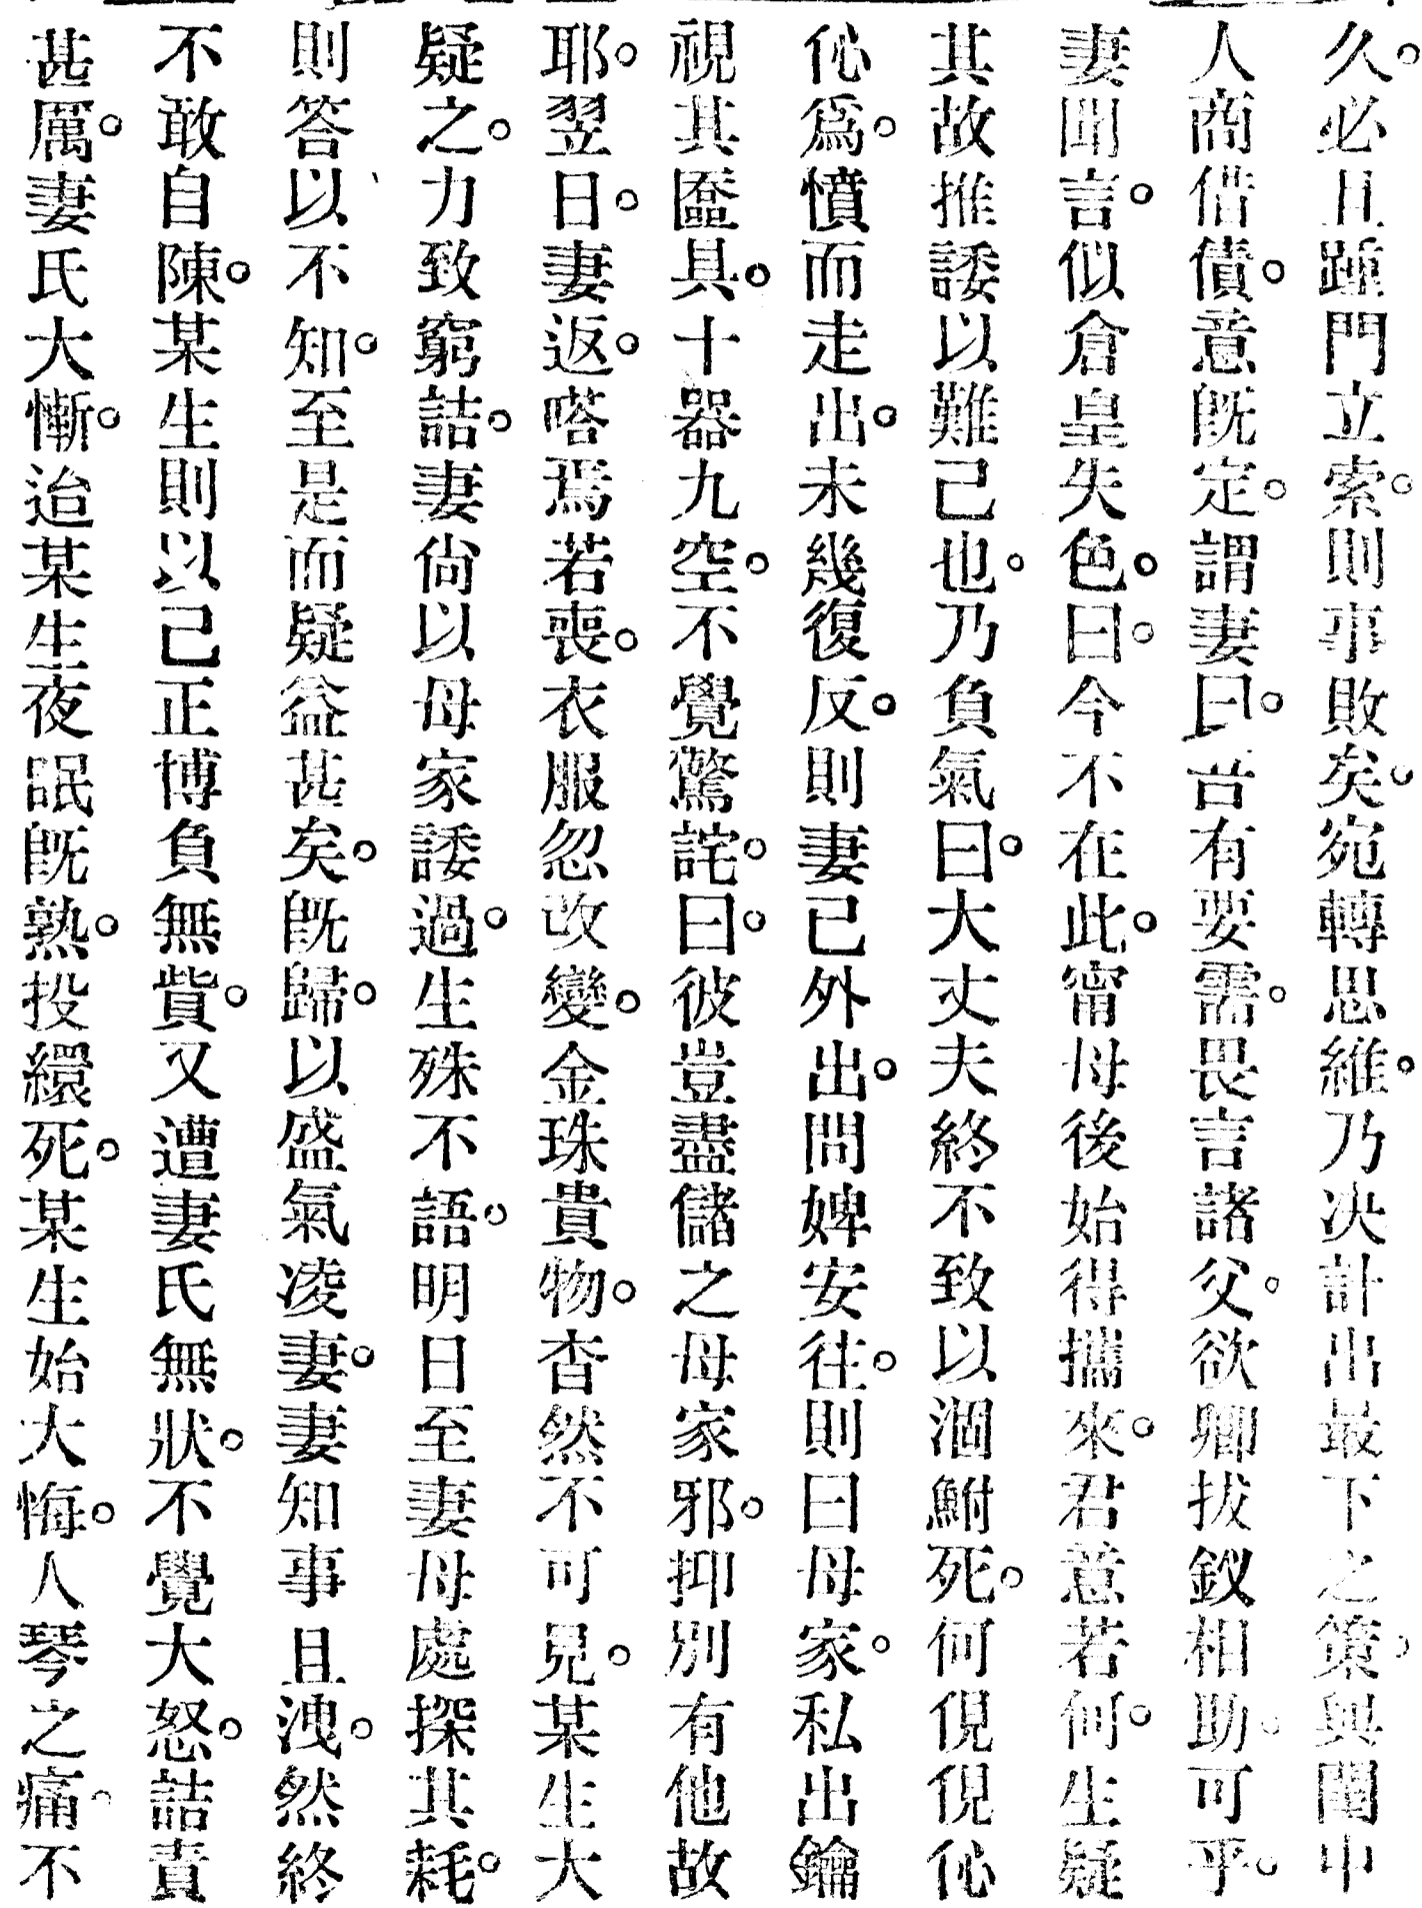 久。必且踵門立索。則事敗矣。宛轉思維。乃决計出最下之策。與閨中
人商借債。意既定。謂妻曰。吾有要需。畏言諸父。欲卿拔釵相助。可乎。
妻聞言。似倉皇失色。曰。今不在此。甯母後始得攜來。君意若何。生疑
其故推諉以難己也。乃負氣曰。大丈夫終不致以涸鮒死。何俔俔伈
伈爲。憤而走出。未幾復反。則妻已外出。問婢安往。則曰母家。私出鑰
視其匲具。十器九空。不覺驚詫。曰。彼豈盡儲之母家邪。抑別有他故
耶。翌日。妻返。嗒焉若喪。衣服忽改變。金珠貴物。杳然不可見。某生大
疑之。力致窮詰。妻尙以母家諉過。生殊不語。明日至妻母處探其耗。
則答以不知。至是而疑益甚矣。既歸。以盛氣凌妻。妻知事且洩。然終
不敢自陳。某生則以己正博負無貲。又遭妻氏無狀。不覺大怒。詰責
甚厲。妻氏大慚。迨某生夜眠既熟。投繯死。某生始大悔。人琴之痛。不